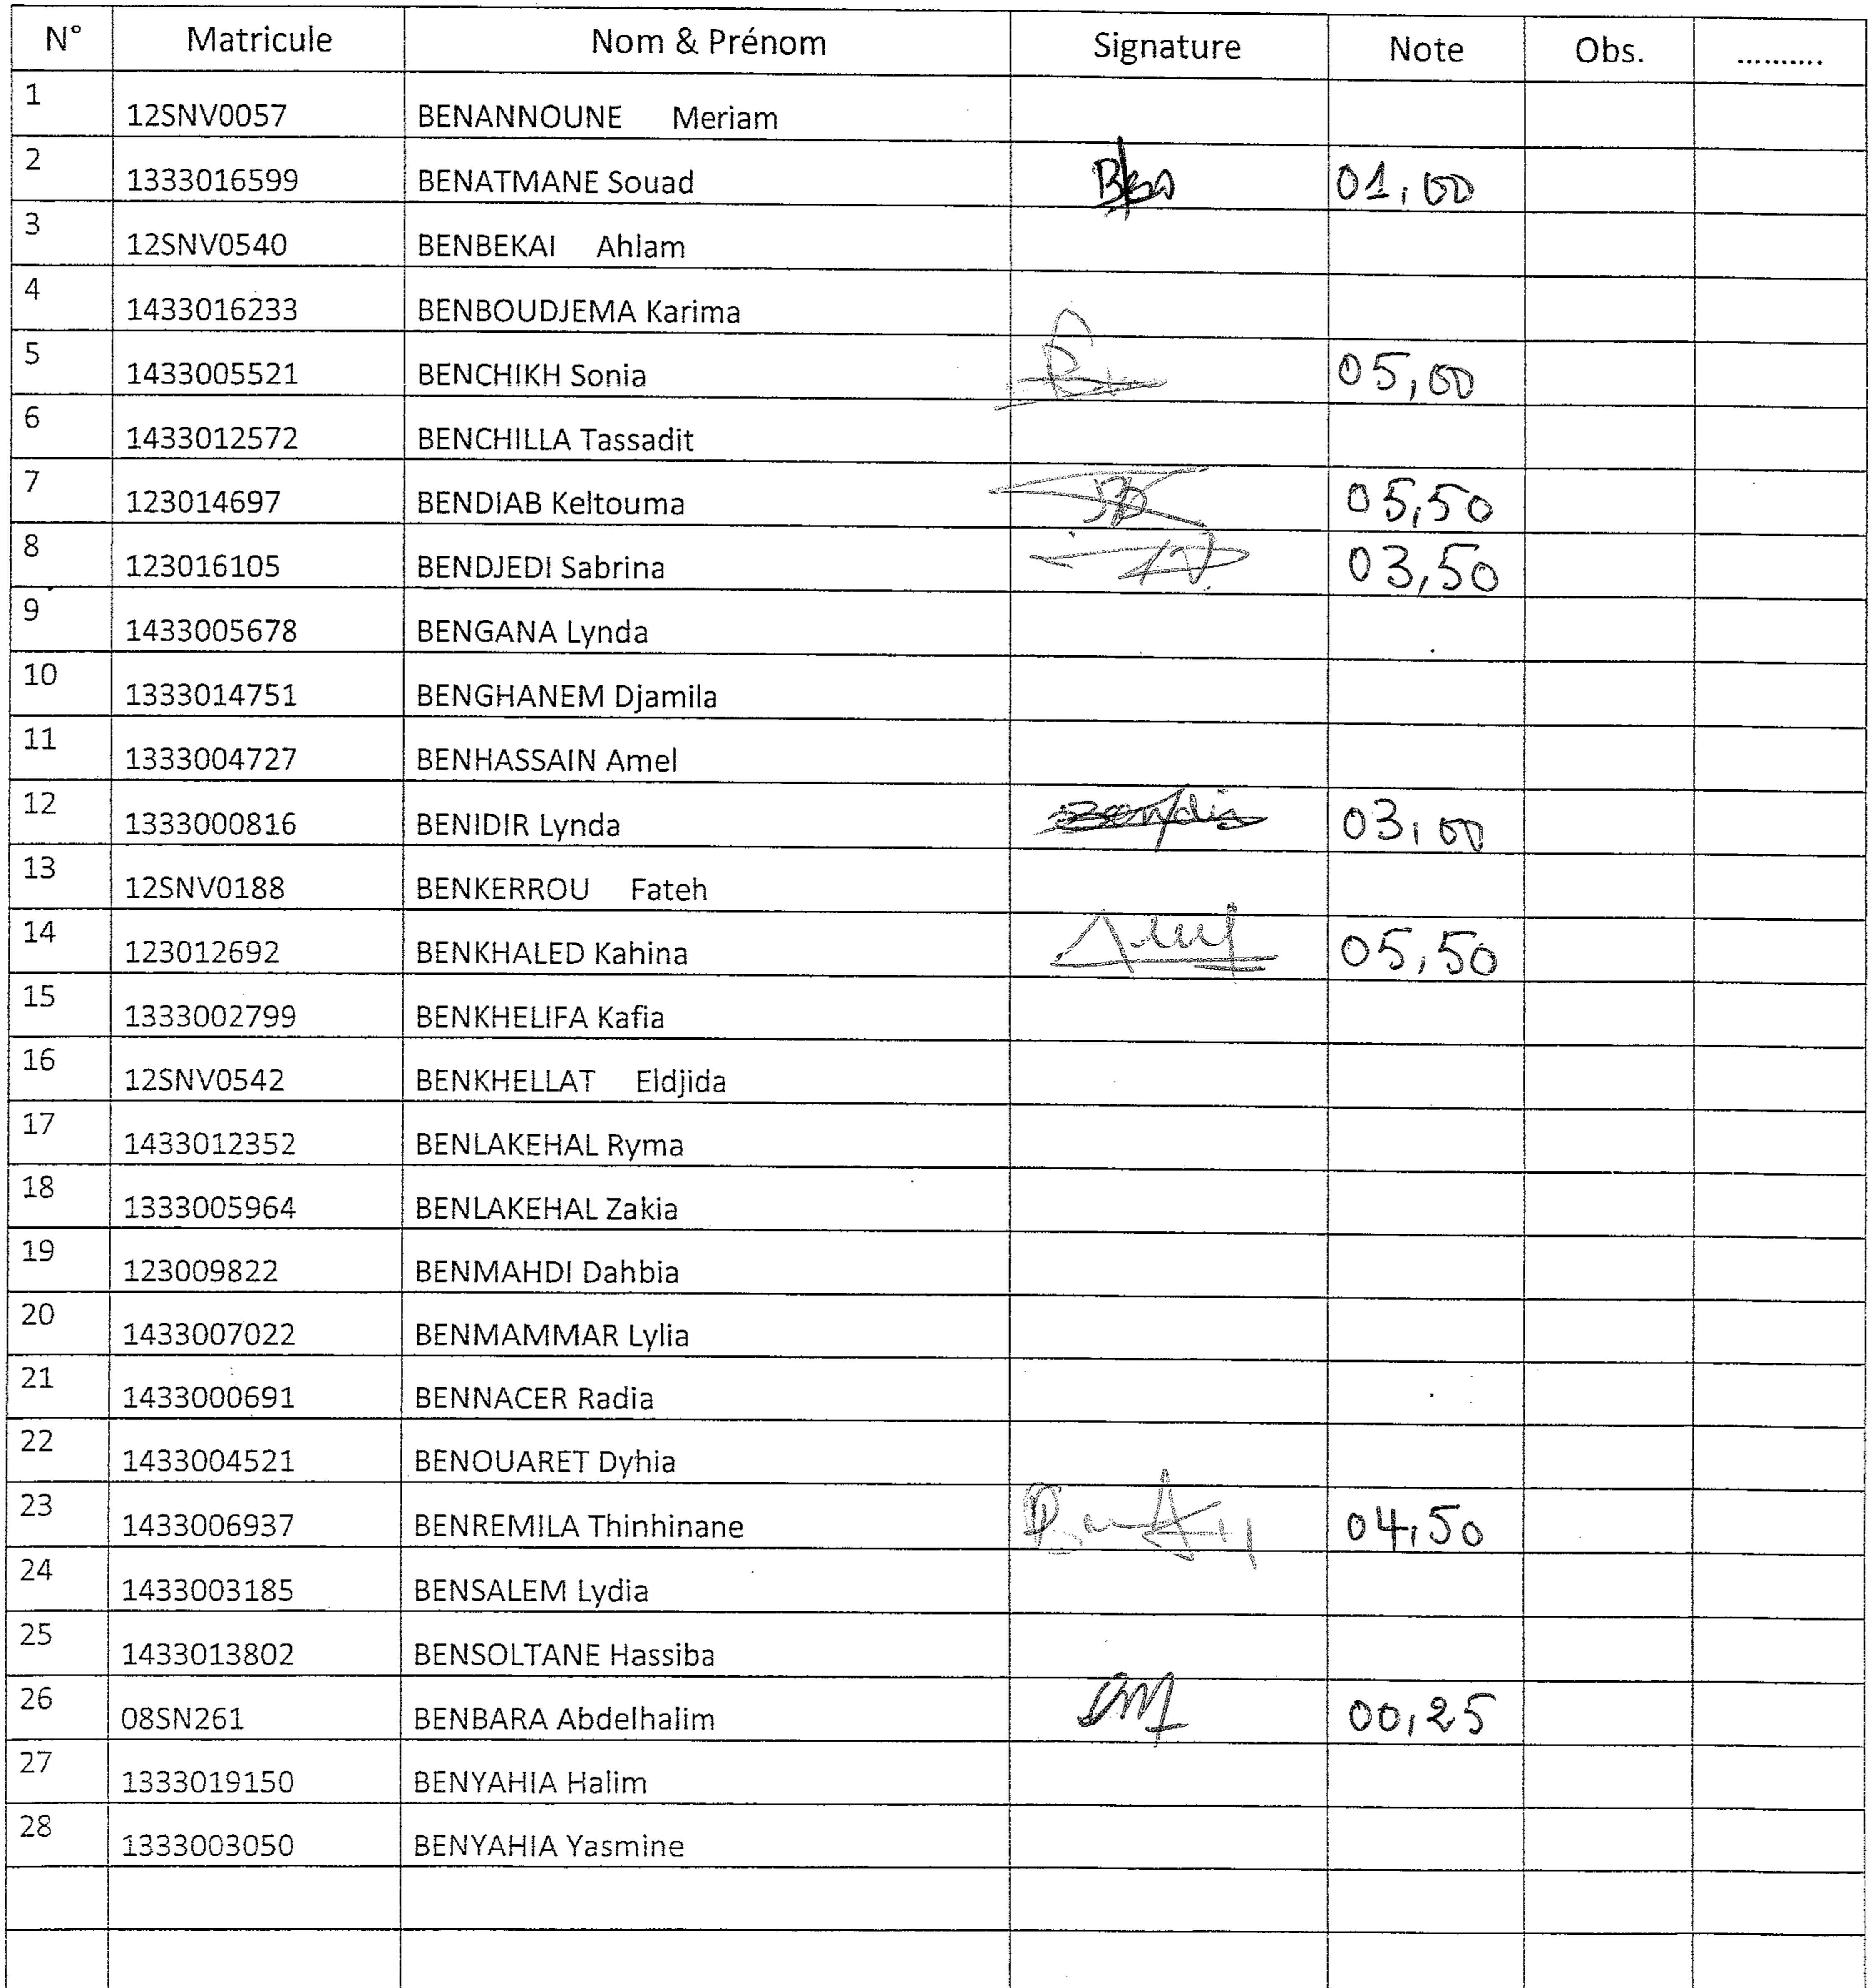 N° Matricule Nom & Prénom Signature Note Obs. ..........
1 12SNV0057 BENANNOUNE Meriam
2 1333016599 BENATMANE Souad 01,00
3 12SNV0540 BENBEKAI Ahlam
4 1433016233 BENBOUDJEMA Karima
5 1433005521 BENCHIKH Sonia 05,00
6 1433012572 BENCHILLA Tassadit
7 123014697 BENDIAB Keltouma 05,50
8 123016105 BENDJEDI Sabrina 03,50
9 1433005678 BENGANA Lynda
10 1333014751 BENGHANEM Djamila
11 1333004727 BENHASSAIN Amel
12 1333000816 BENIDIR Lynda 03,00
13 12SNV0188 BENKERROU Fateh
14 123012692 BENKHALED Kahina 05,50
15 1333002799 BENKHELIFA Kafia
16 12SNV0542 BENKHELLAT Eldjida
17 1433012352 BENLAKEHAL Ryma
18 1333005964 BENLAKEHAL Zakia
19 123009822 BENMAHDI Dahbia
20 1433007022 BENMAMMAR Lylia
21 1433000691 BENNACER Radia
22 1433004521 BENOUARET Dyhia
23 1433006937 BENREMILA Thinhinane 04,50
24 1433003185 BENSALEM Lydia
25 1433013802 BENSOLTANE Hassiba
26 08SN261 BENBARA Abdelhalim 00,25
27 1333019150 BENYAHIA Halim
28 1333003050 BENYAHIA Yasmine